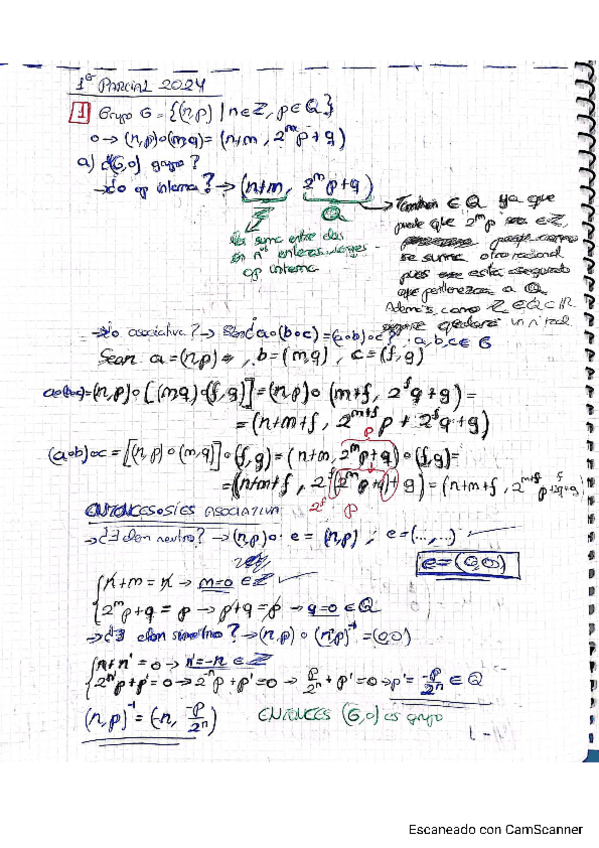 1er PARCIAL 2024
1 Grupo G = {(n,p) | n∈ℤ, p∈ℚ}
o → (n,p)o(m,q) = (n+m, 2^m p+q)
a) ¿(G,o) grupo?
→ ¿o op interna? → (n+m, 2^m p+q)
ℤ ℚ
la suma entre dos
nos enteros
op interna
También ∈ ℚ ya que
puede que 2^m p sea ∈ ℤ,
se suma otro racional
pues está asegurado
que pertenezca a ℚ
Además, como ℤ∈ℚ∈ℝ
→ ¿o asociativa? → ao(boc) = (aob)oc? a,b,c∈G
Sean a=(n,p), b=(m,q), c=(f,g)
ao(boc)=(n,p)o[(m,q)o(f,g)]=(n,p)o(m+f, 2^f q+g)=
=(n+m+f, 2^{m+f} p + 2^f q+g)
p
(aob)oc=[(n,p)o(m,q)]o(f,g)=(n+m, 2^m p+q)o(f,g)=
=(n+m+f, 2^f(2^m p+q)+g)=(n+m+f, 2^{m+f} p+2^f q+g)
2^f p
ENTONCES o SÍ ES ASOCIATIVA
→ ¿∃ elem neutro? → (n,p)o e = (n,p) ; e=(...,...)
e=(0,0)
n+m=n → m=0∈ℤ
2^m p+q=p → p+q=p → q=0∈ℚ
→ ¿∃ elem simétrico? → (n,p)o(n,p)^-1=(0,0)
n+n'=0 → n'=-n∈ℤ
2^n' p+p'=0 → 2^-n p+p'=0 → p/2^n + p'=0 → p'=-p/2^n ∈ℚ
(n,p)^-1=(-n, -p/2^n) ENTONCES (G,o) es grupo
Escaneado con CamScanner